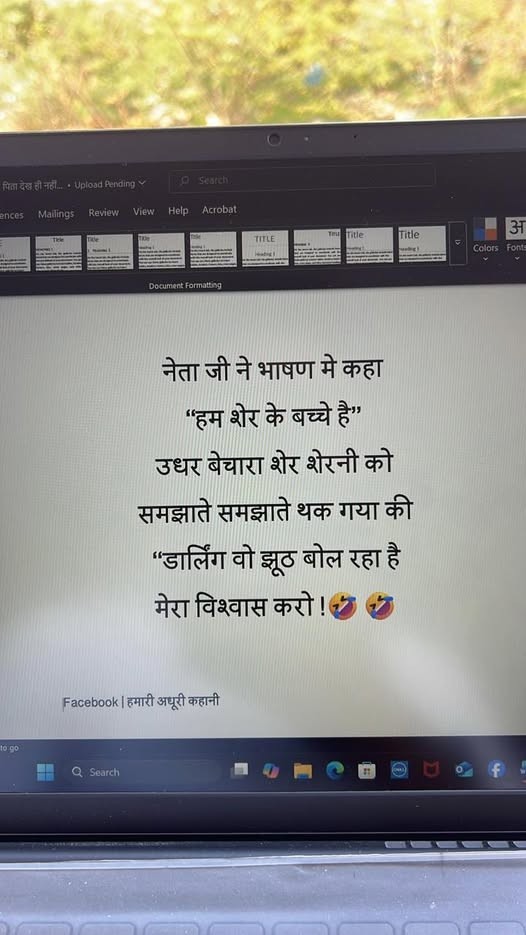 पिता देख ही नहीं... • Upload Pending
Search
ences Mailings Review View Help Acrobat
Title Title Title Title TITLE Title Title Title
Heading 1
Colors
Fonts
Document Formatting
नेता जी ने भाषण मे कहा
“हम शेर के बच्चे है”
उधर बेचारा शेर शेरनी को
समझाते समझाते थक गया की
“डार्लिंग वो झूठ बोल रहा है
मेरा विश्वास करो !🤣 🤣
Facebook | हमारी अधूरी कहानी
to go
Search
DELL